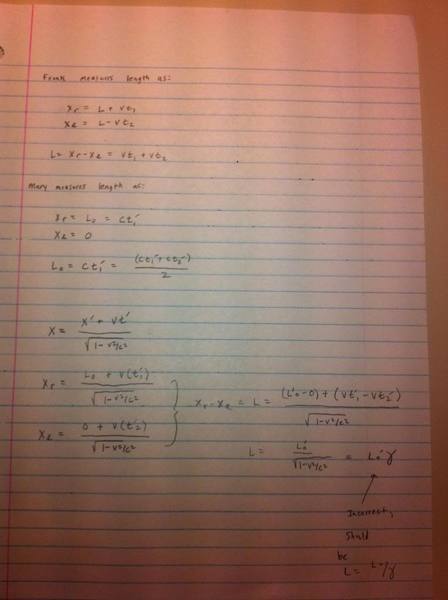 Frank measures length as:
x_r = L + vt_1
x_l = L - vt_2
L = x_r - x_l = vt_1 + vt_2
Mary measures length as:
x_r = L_0 = ct_1'
x_l = 0
L_0 = ct_1' = (ct_1' + ct_2') / 2
x = (x' + vt') / √(1 - v²/c²)
x_r = (L_0 + v(t_1')) / √(1 - v²/c²)
x_l = (0 + v(t_2')) / √(1 - v²/c²)
x_r - x_l = L = ((L_0' - 0) + (vt_1' - vt_2')) / √(1 - v²/c²)
L = L_0' / √(1 - v²/c²) = L_0' γ
Incorrect,
should
be
L = L_0/γ